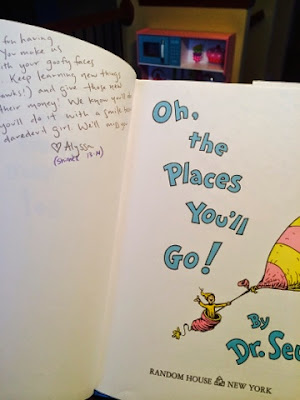 fun having
You make us
with your goofy faces
Keep learning new things
and give those new
their money! We know you'll do
you'll do it with a smile
daredevil girl. We'll miss you
♡ Alyssa
Oh,
the
Places
You'll
Go!
By
Dr. Seu
RANDOM HOUSE NEW YORK